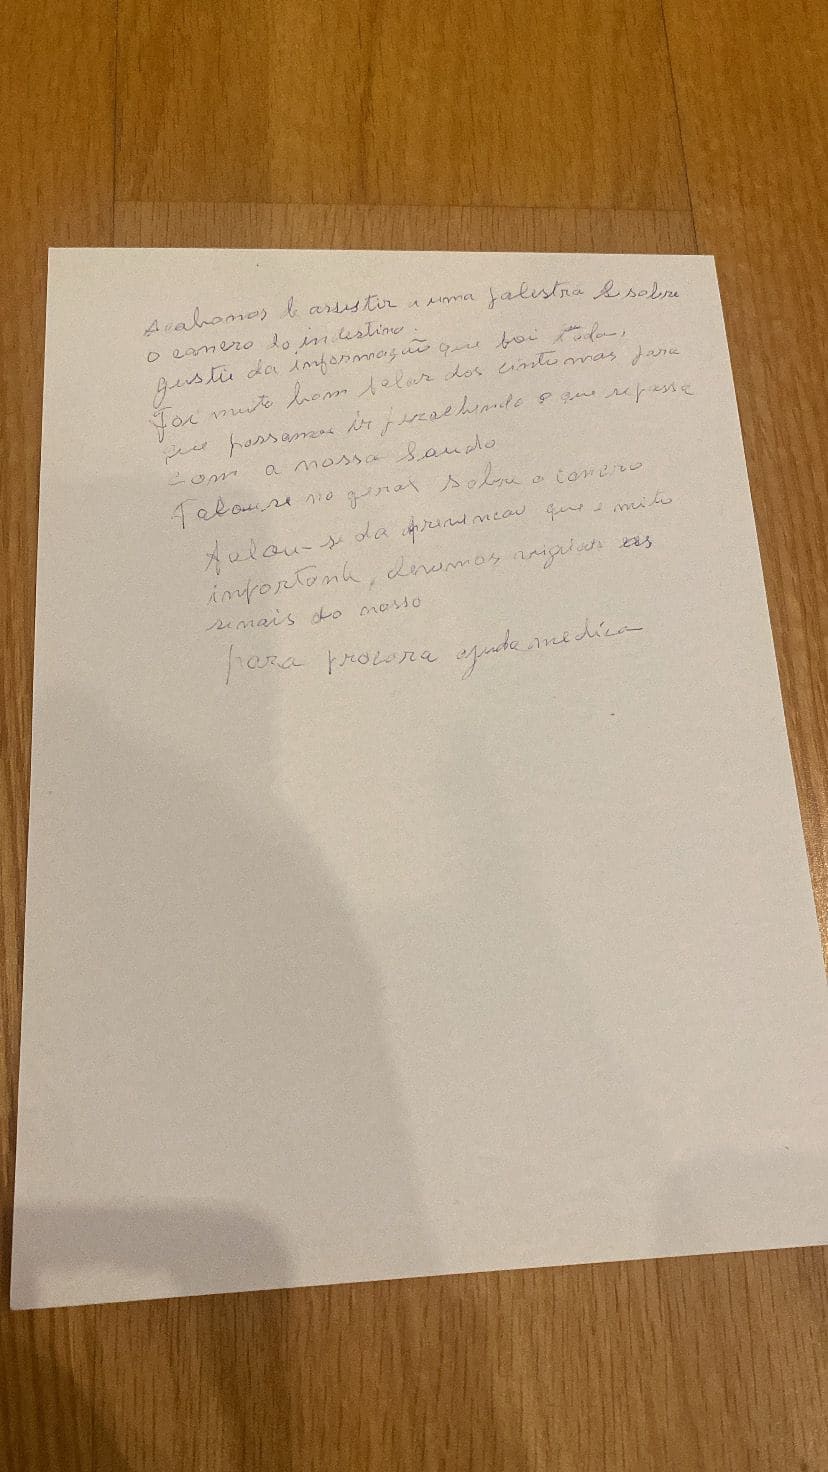 Acabamos de assistir a uma palestra sobre
o cancro do indestino.
gustei da informação que foi dada,
Foi muito bom falar dos cintomas para
que possamos ir precebendo o que se passa
com a nossa Saude
Falou-se no geral sobre o cancro
falou-se da prevencao que e muito
importante, devemos as
senais do nosso
para procora ajuda medica